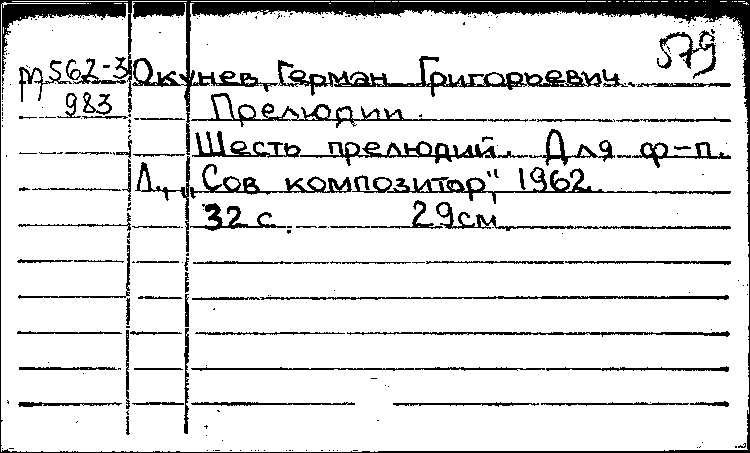 579
м562-3 Окунев, Герман Григорьевич.
983 Прелюдии.
Шесть прелюдий. Для ф-п.
Л., „Сов. композитор", 1962.
32 с. 29см.